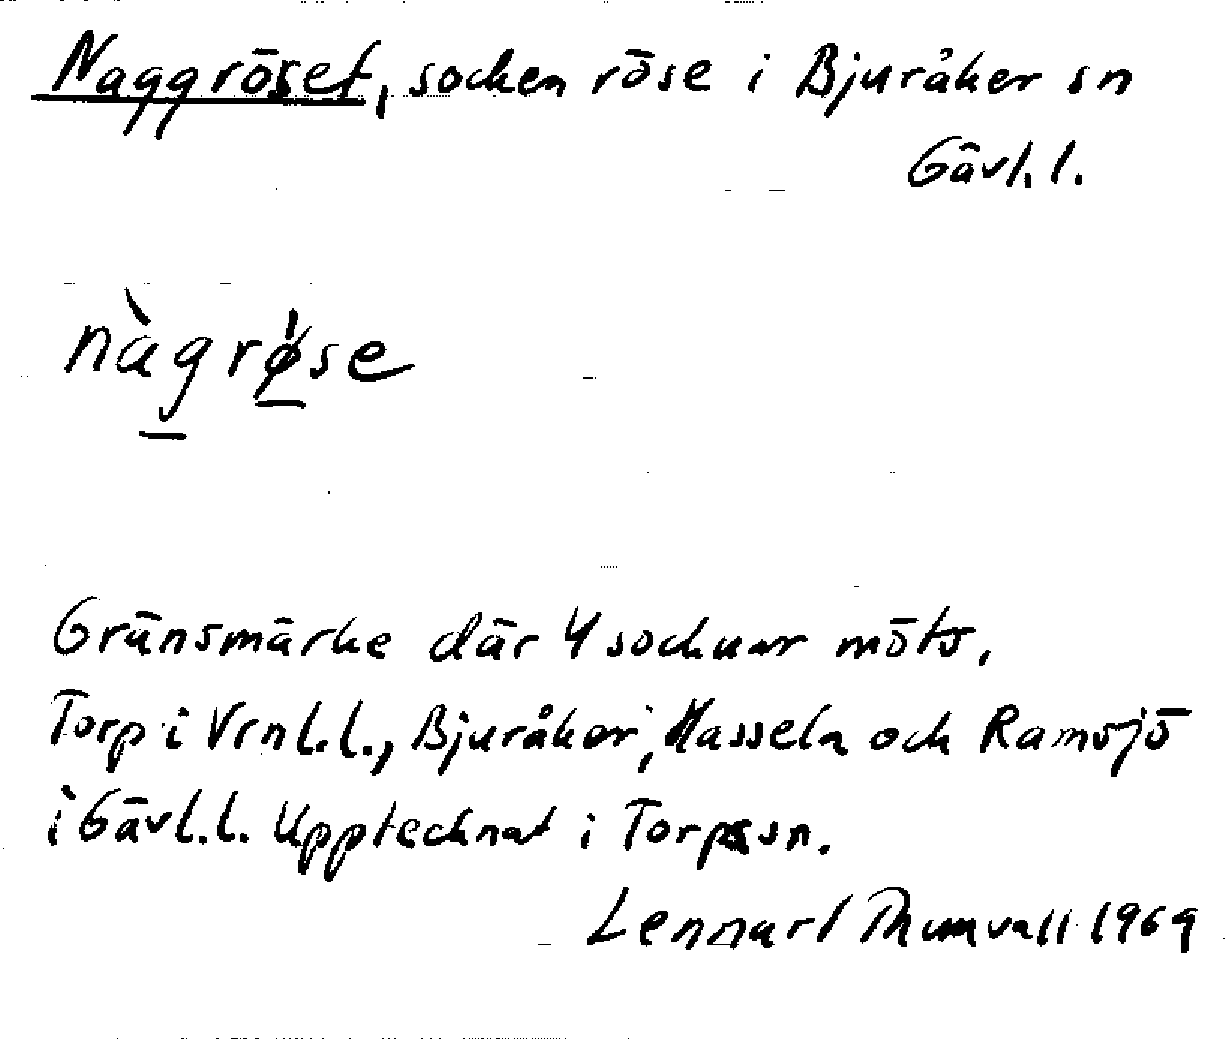 Naggröset, socken röse i Bjuråker sn
Gävl.l.
nàgrø̀se
Gränsmärke där 4 socknar möts,
Torp i Vrnl.l., Bjuråker, Hasseln och Ramsjö
i Gävl.l. Upptecknat i Torps sn.
Lennart Thumvall 1969